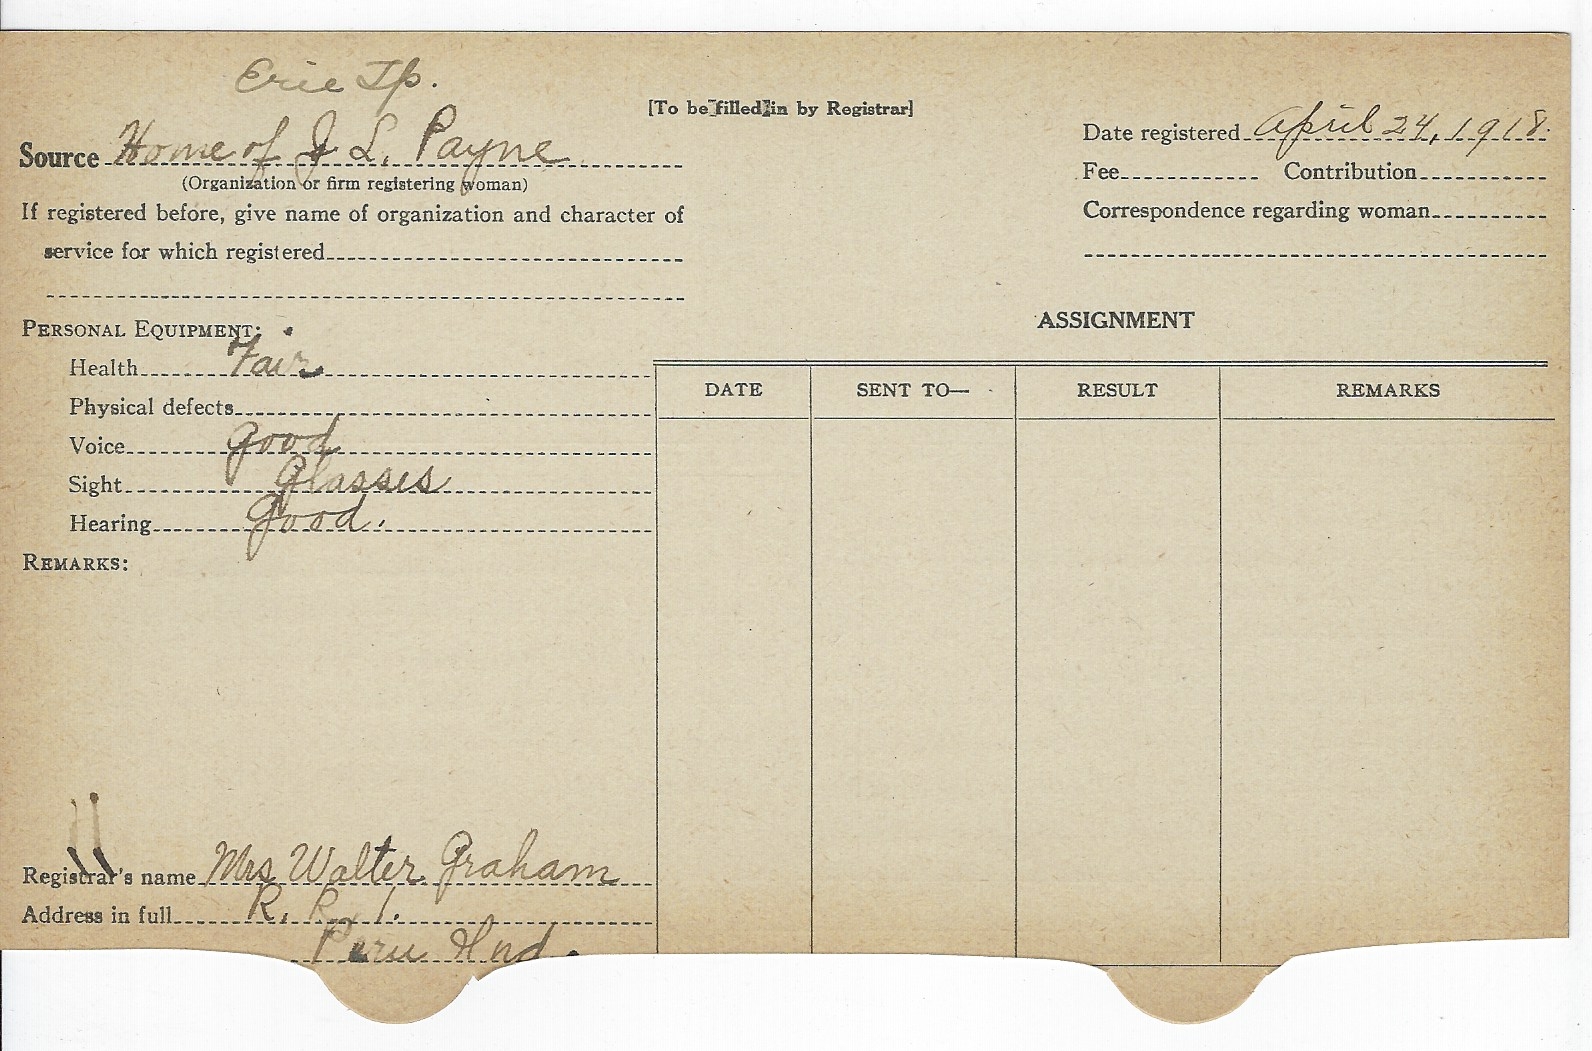 Erie Tp.
[To be filled in by Registrar]
Source Home of J L. Payne
(Organization or firm registering woman)
If registered before, give name of organization and character of
service for which registered
Date registered April 24, 1918.
Fee Contribution
Correspondence regarding woman
PERSONAL EQUIPMENT:
Health Fair
Physical defects
Voice good
Sight Glasses
Hearing Good.
REMARKS:
ASSIGNMENT
DATE SENT TO— RESULT REMARKS
Registrar's name Mrs Walter Graham
Address in full R. R. 1.
Peru Ind.